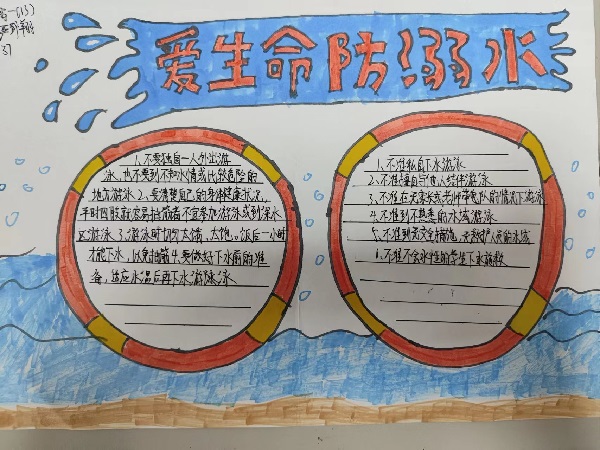 高一(13)
爱生命防溺水
1、不要独自一人外出游
泳,也不要到不知水情或比较危险的
地方游泳2、要清楚自己的身体健康状况,
平时四肢就容易抽筋者不宜参加游泳或到深水
区游泳3、游泳时切勿太饿、太饱。饭后一小时
才能下水,以免抽筋4、要做好下水前的准
备,适应水温后再下水游泳
1、不准私自下水游泳
2、不准擅自与他人结伴游泳
3、不准在无家长或老师带队的情况下游泳
4、不准到不熟悉的水域游泳
5、不准到无安全措施、无救护人员的水域
6、不准不会水性的学生下水施救